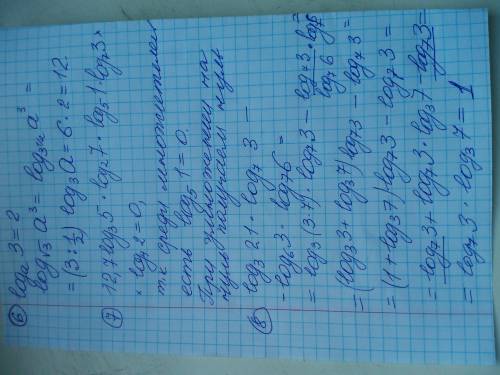 ⑥ log_a 3 = 2
log_√3 a³ = log_{3^{1/2}} a³ =
= (3 : 1/2) log_3 a = 6 · 2 = 12.
⑦ 12,7 log_3 5 · log_2 7 · log_5 1 · log_7 3 ×
× log_7 2 = 0,
т.к среди множителей
есть log_5 1 = 0.
При умножении на
нуль получаем нуль
⑧ log_3 21 · log_7 3 –
– log_6 3 · log_7 6 =
= log_3 (3·7) · log_7 3 – log_7 3 / log_7 6 · log_7 6 =
= (log_3 3 + log_3 7) log_7 3 – log_7 3 =
= (1 + log_3 7) log_7 3 – log_7 3 =
= log_7 3 + log_7 3 · log_3 7 – log_7 3 =
= log_7 3 · log_3 7 = 1